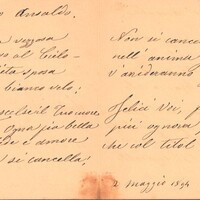 Ansaldo.
vezzosa
al Cielo
sposa
bianco velo;
scelse il Tuo more
ogni più bella
è amore
si cancella,
Non si cance
nell' anima
v' anideranno
Felici Voi, p
più ognora
che col titol
2 Maggio 1894